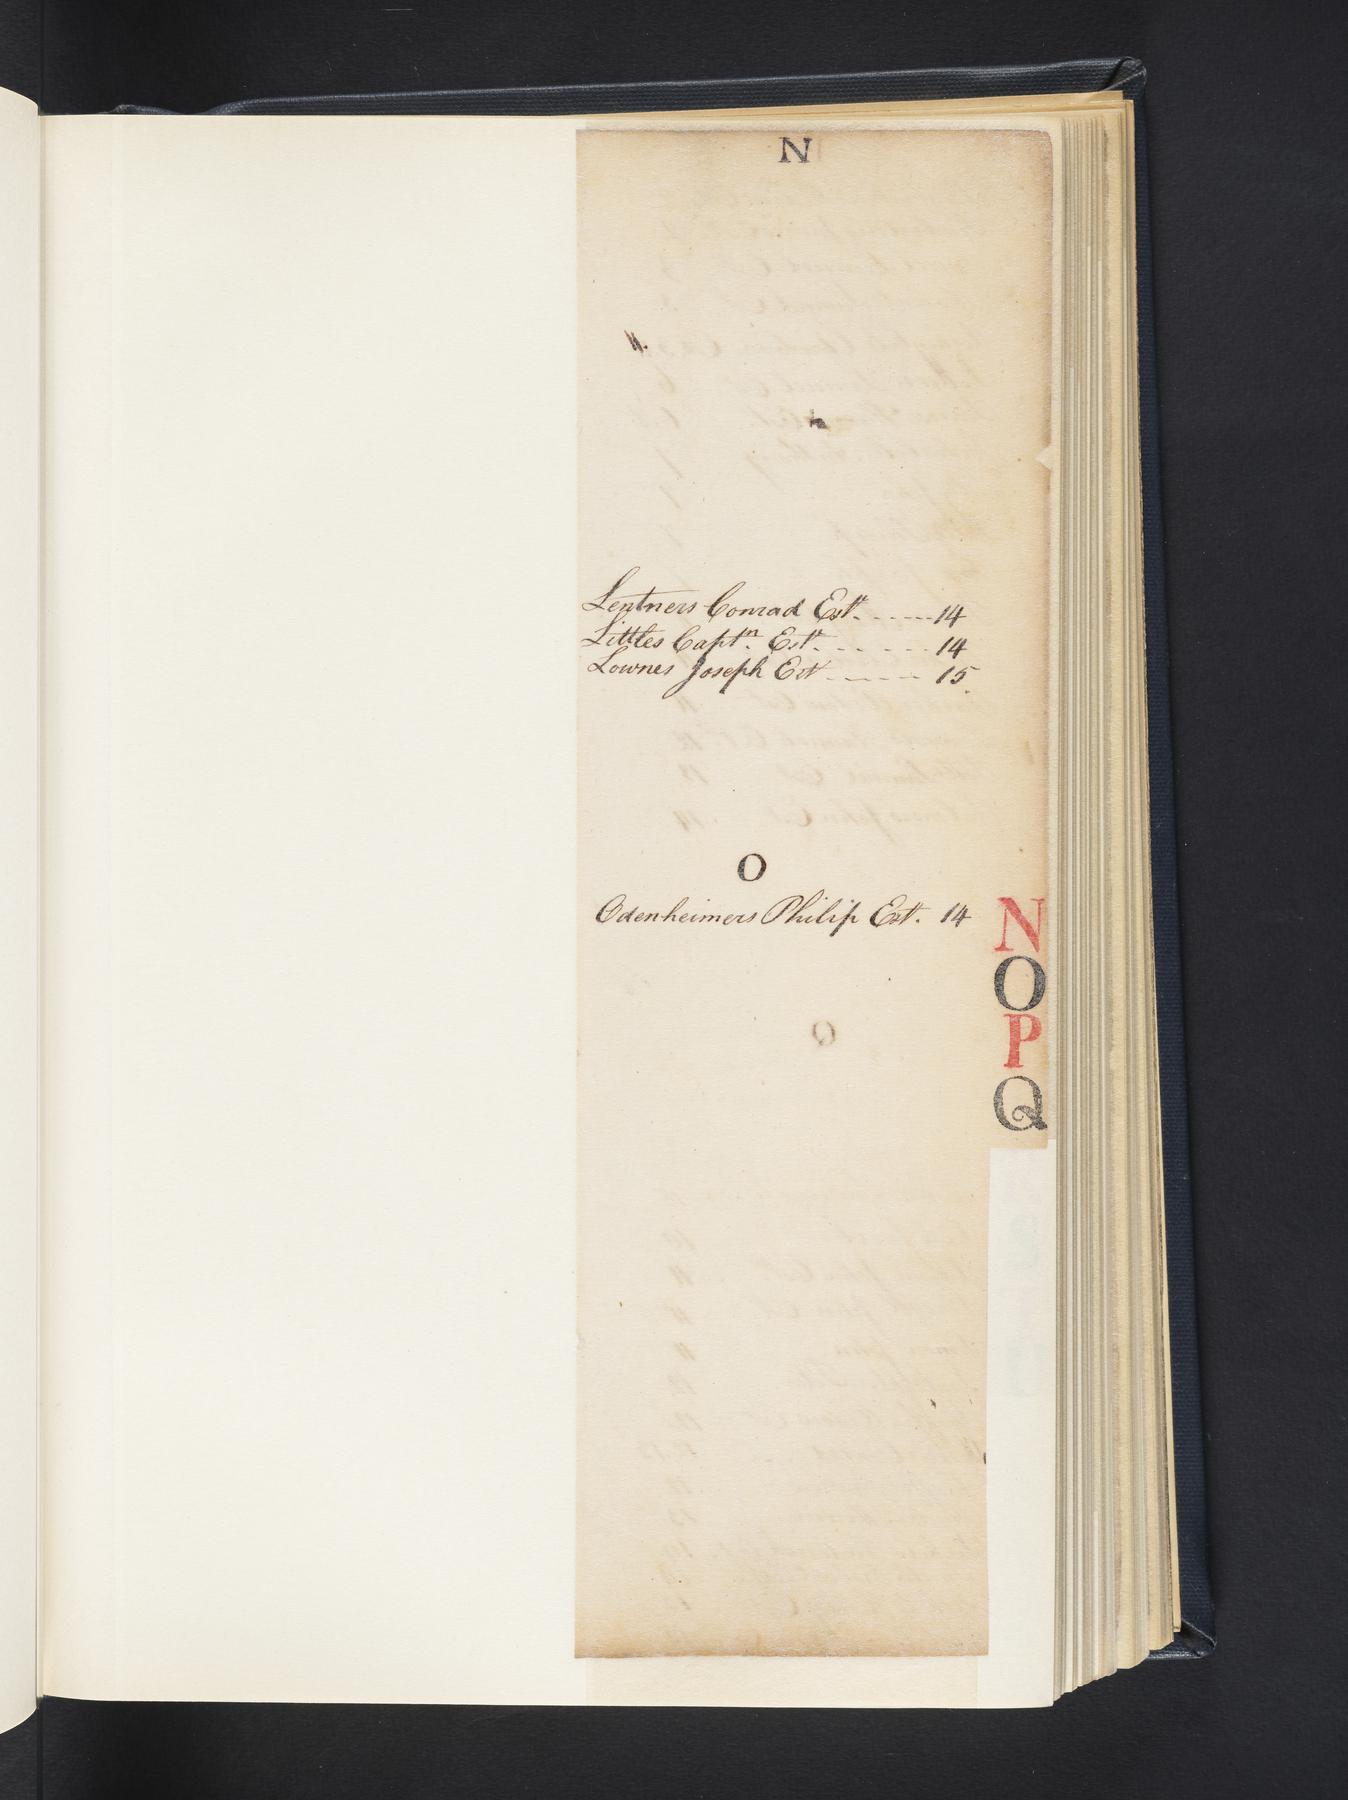 N
Lentners Conrad Estt. ------14
Littles Captn. Estt. - - - - - - 14
Lownes Joseph Est ------ 15
O
Odenheimers Philip Estt. 14
N
O
P
Q